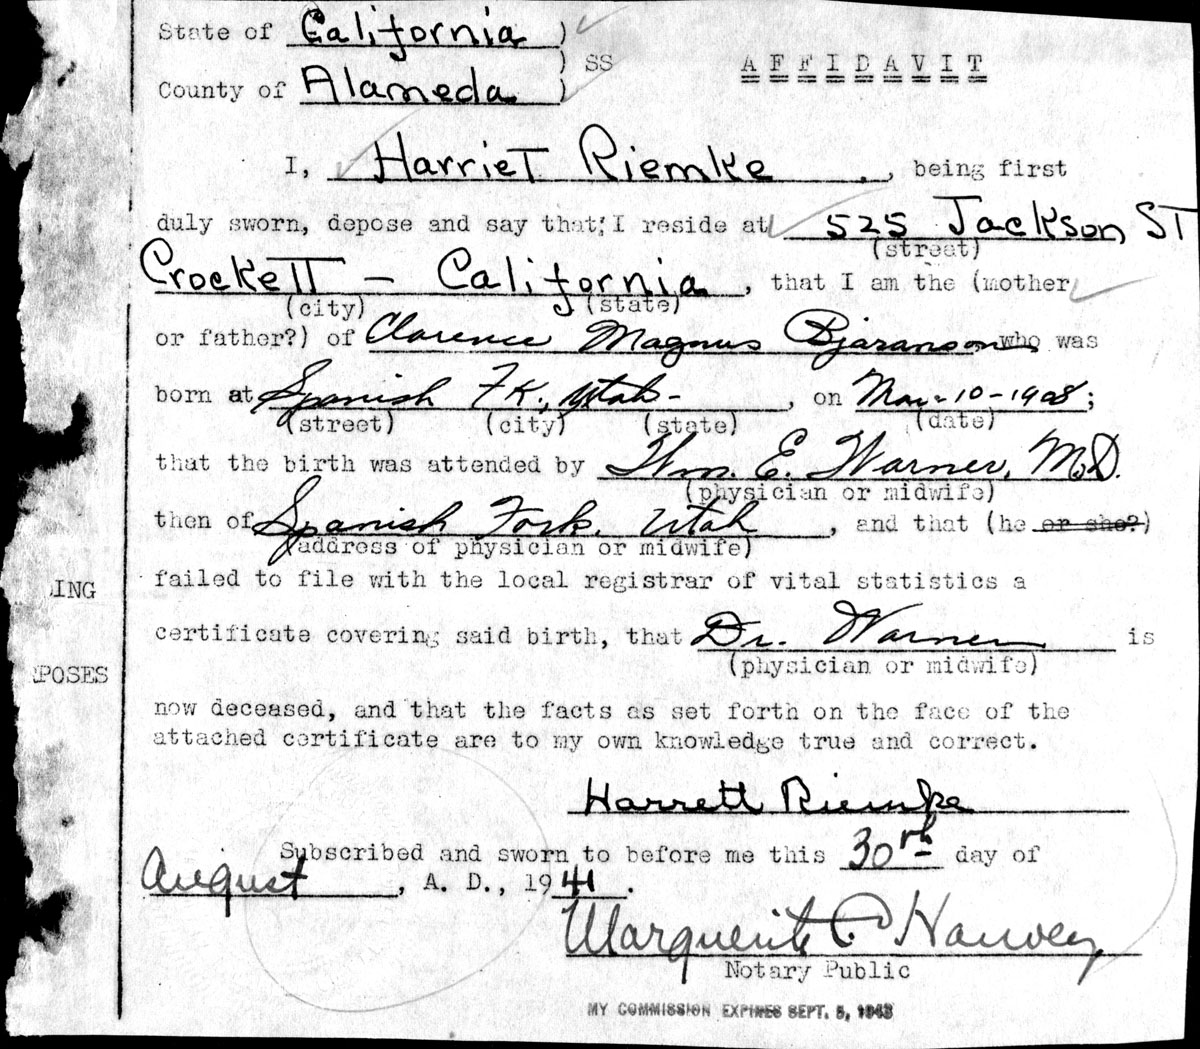 State of California )
) SS
A F F I D A V I T
County of Alameda )
I, Harriet Riemke, being first
duly sworn, depose and say that; I reside at 525 Jackson ST
(street)
Crockett – California, that I am the (mother
(city) (state)
or father?) of Clarence Magnus Bjaranson who was
born at Spanish Fk., Utah-, on Mar-10-1908;
(street) (city) (state) (date)
that the birth was attended by Wm. E. Warner, M.D.
(physician or midwife)
then of Spanish Fork, Utah, and that (he or she?)
(address of physician or midwife)
failed to file with the local registrar of vital statistics a
ING
certificate covering said birth, that Dr. Warner is
(physician or midwife)
POSES
now deceased, and that the facts as set forth on the face of the
attached certificate are to my own knowledge true and correct.
Harrett Riemke
Subscribed and sworn to before me this 30th day of
August, A. D., 1941.
Marguerite C. Harvey
Notary Public
MY COMMISSION EXPIRES SEPT. 5, 1943